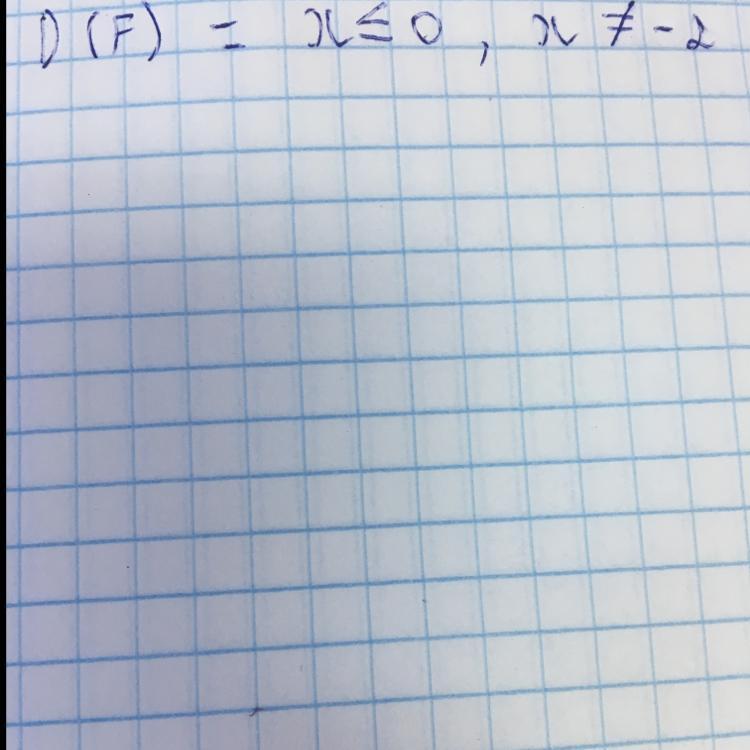 D(F) = x ≤ 0, x ≠ -2